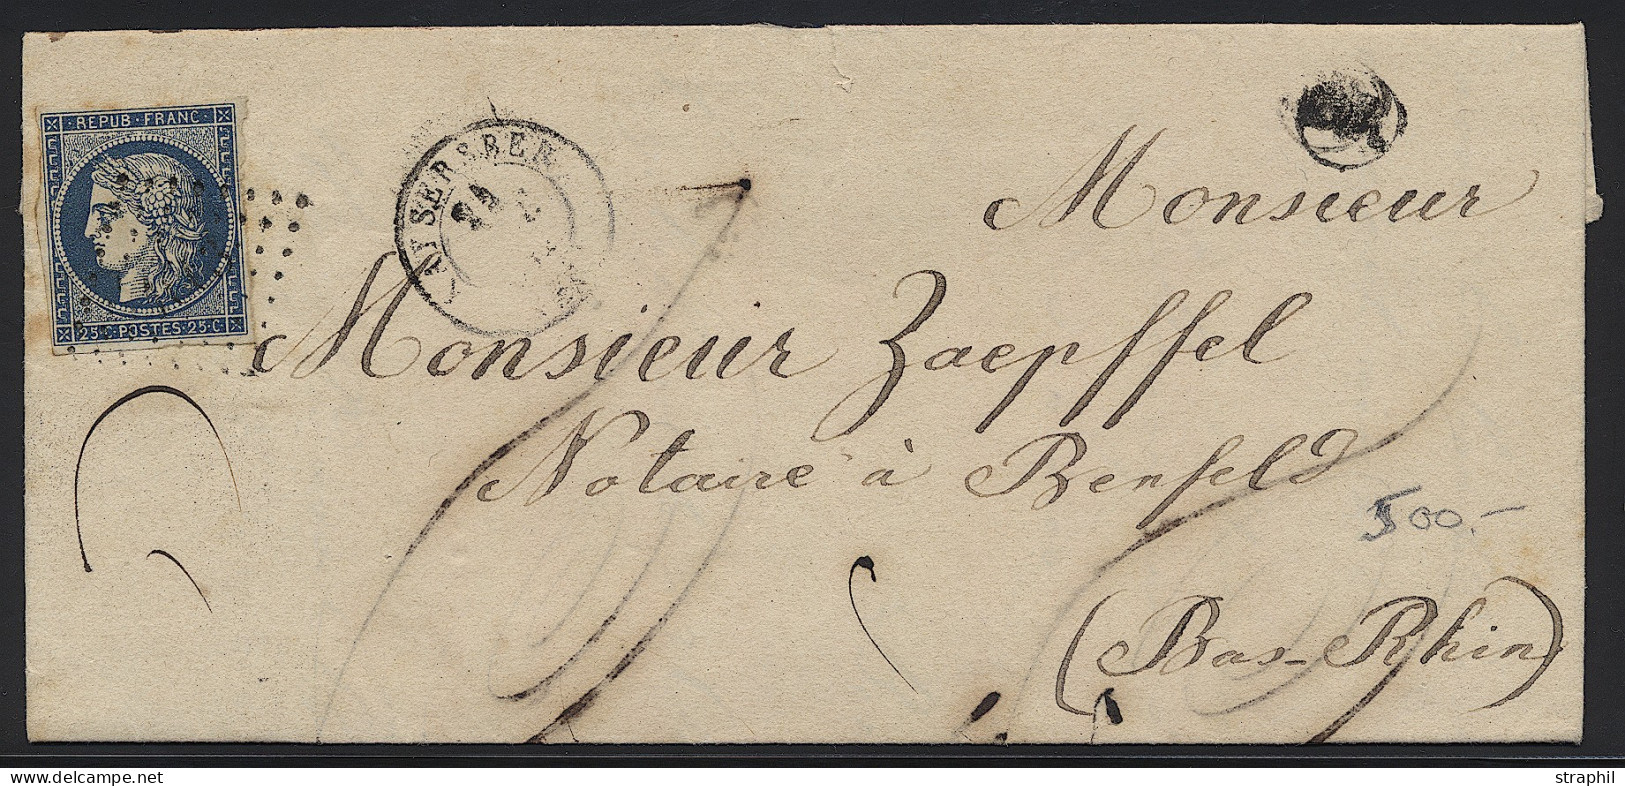 REPUB·FRANC·
25·C·POSTES·25·C·
AYSERSBER
24
Monsieur
Monsieur Zaepffel
Notaire à Benfeld
500.-
(Bas-Rhin)
delcampe.net
straphil